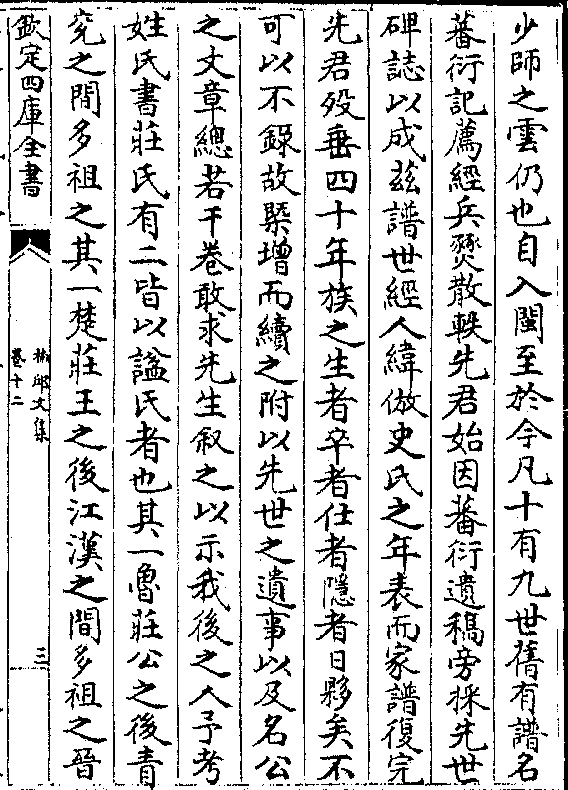 少師之雲仍也自入閩至於今凡十有九世舊有譜名
蕃衍記薦經兵燹散軼先君始因蕃衍遺稿旁採先世
碑誌以成兹譜世經人緯倣史氏之年表而家譜復完
先君殁垂四十年族之生者卒者仕者隱者日夥矣不
可以不錄故槩增而續之附以先世之遺事以及名公
之文章總若干卷敢求先生叙之以示我後之人予考
姓氏書莊氏有二皆以諡氏者也其一魯莊公之後青
兖之間多祖之其一楚莊王之後江漢之間多祖之晉
欽定四庫全書
卷十二
三